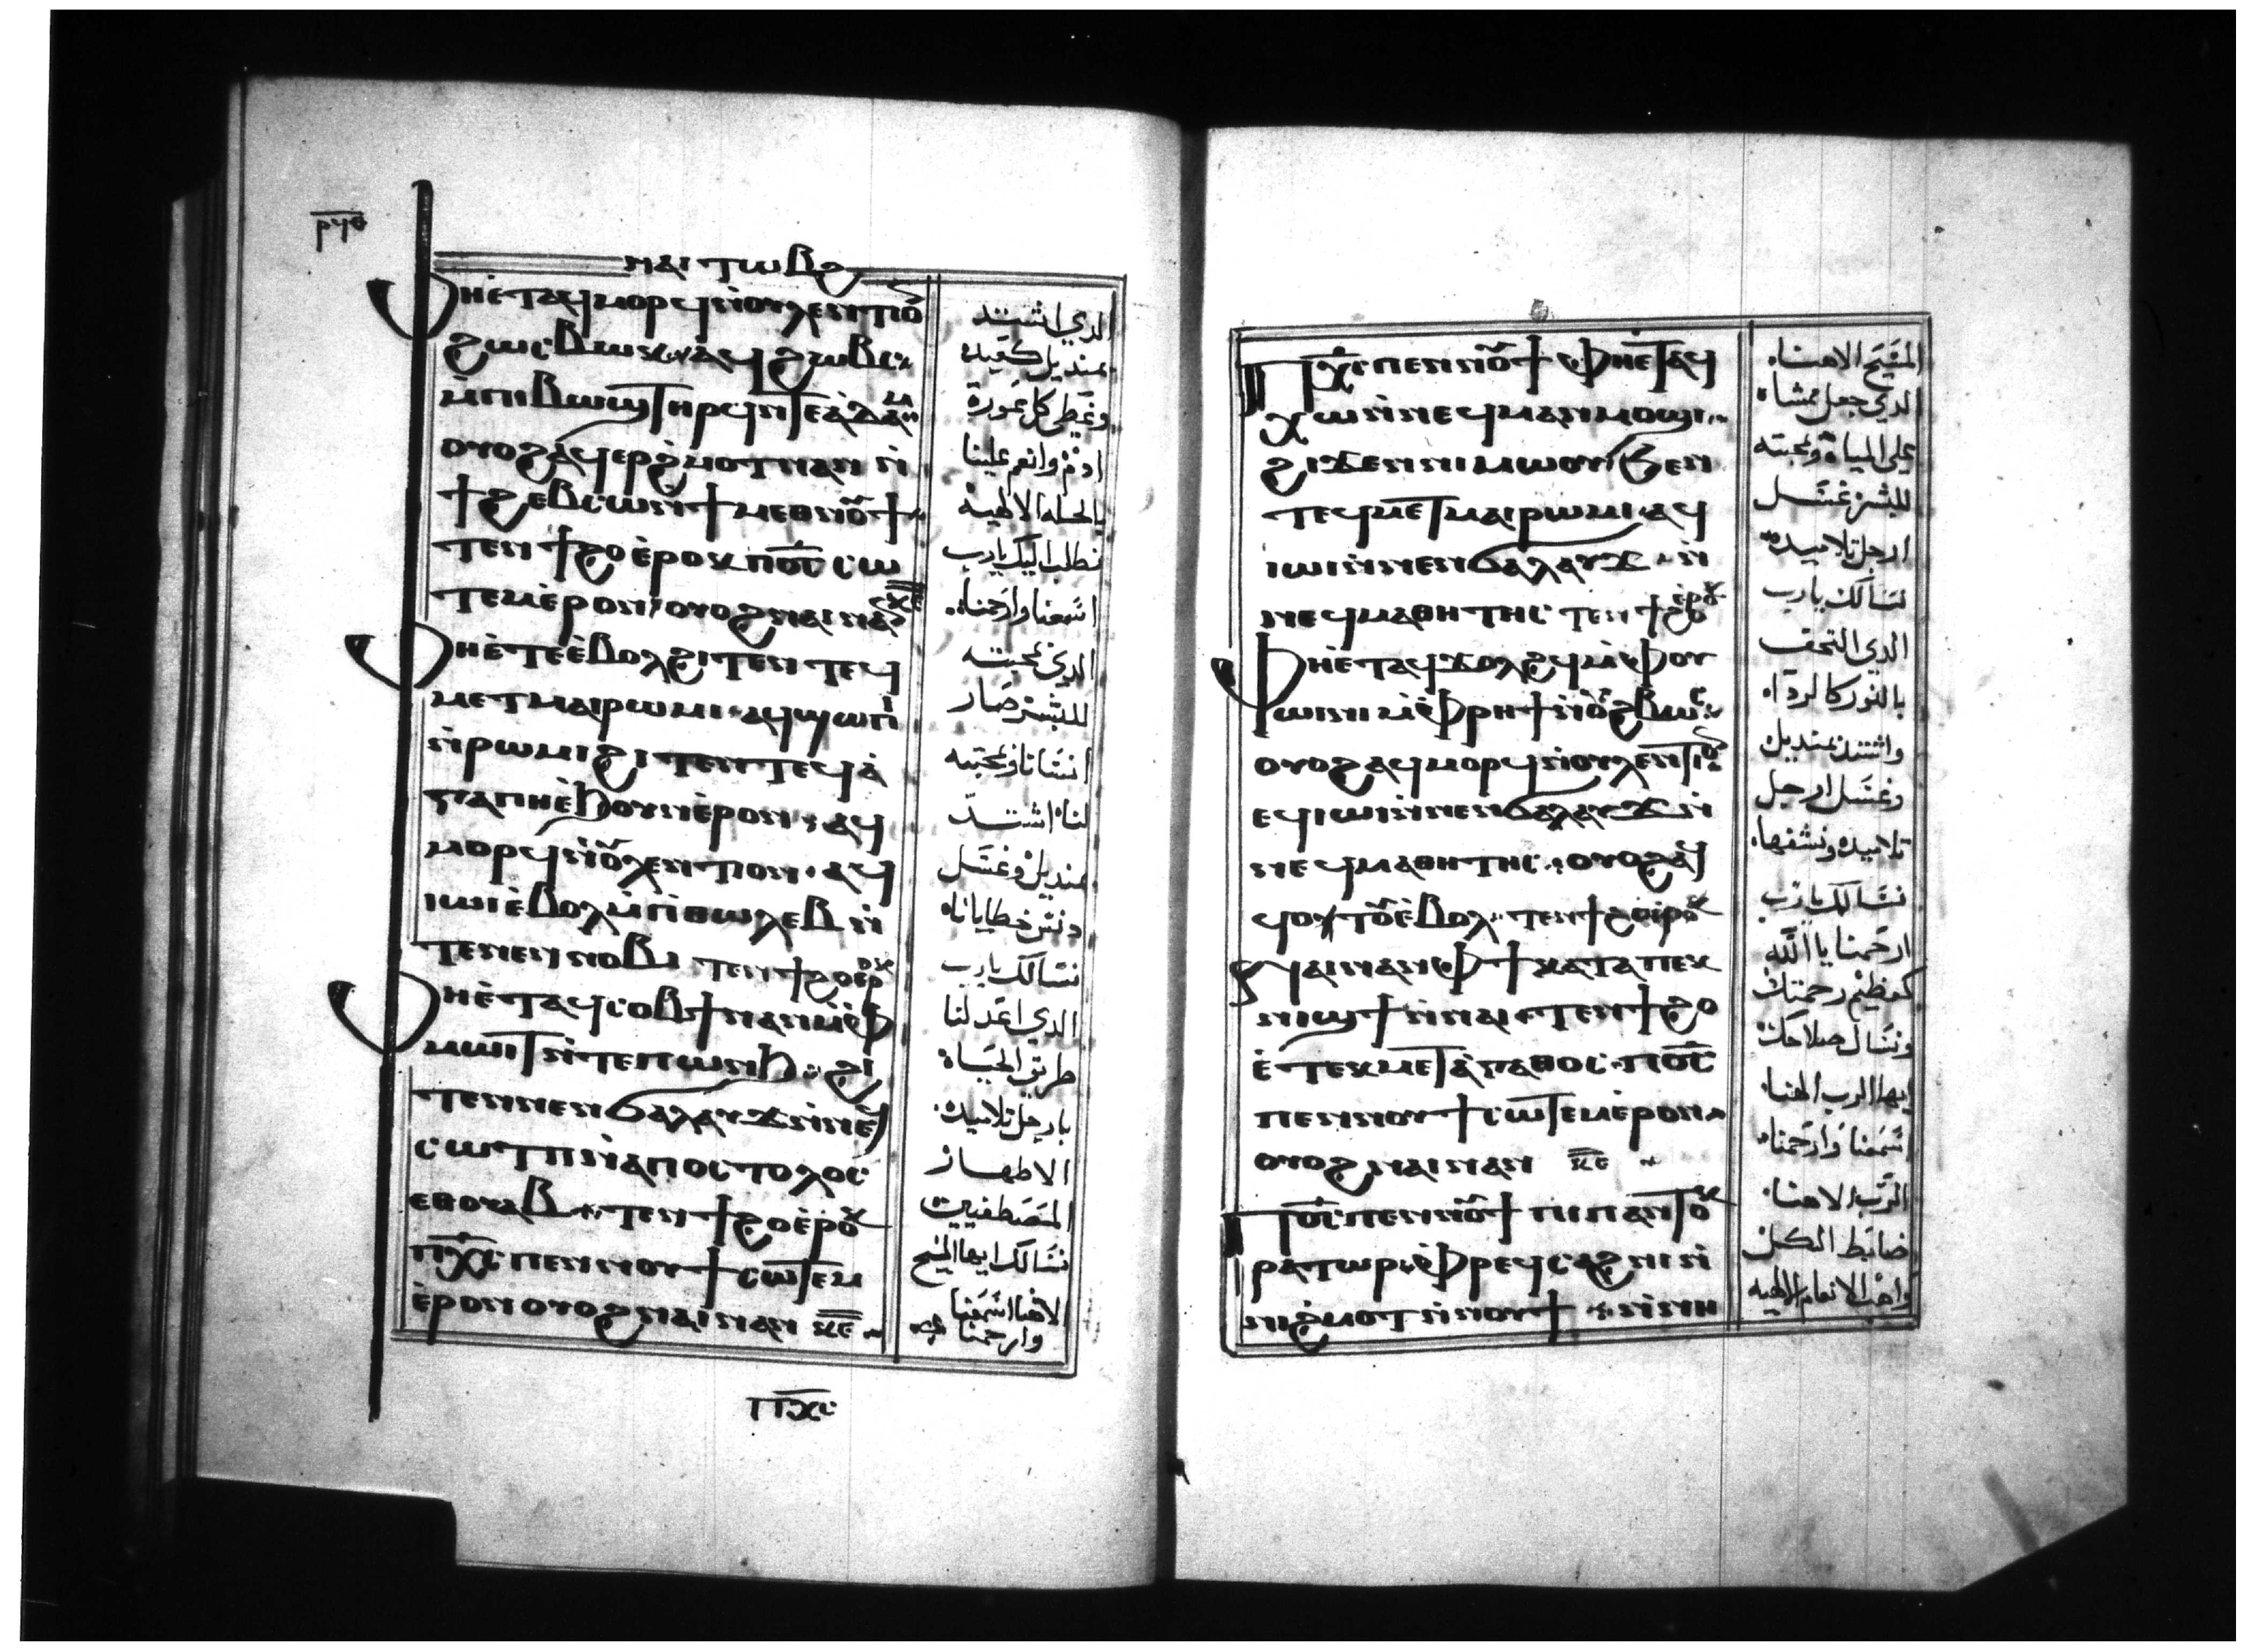 ⲣϥⲑ
ⲛⲁⲓ ⲧⲱⲃϩ
ⲫⲏⲉ̀ⲧⲁϥⲙⲟⲣϥ ⲛ̀ⲟⲩⲗⲉⲛⲧⲓⲟⲛ
ϩⲱⲃⲥ
ⲙ̀ⲡⲓⲃⲱϣ ⲧⲏⲣϥ ⲛ̀ⲧⲉ ⲁ̀ⲇⲁⲙ
ⲟⲩⲟϩ ⲁϥⲉⲣϩ̀ⲙⲟⲧ ⲛⲁⲛ ⲛ̀
ϯϩⲉⲃⲥⲱ ⲛ̀ϯⲙⲉⲑⲛⲟⲩϯ
ⲧⲉⲛϯϩⲟ ⲉ̀ⲣⲟⲕ ⲡⲟ̅ⲥ̅ ⲥⲱ
ⲧⲉⲙ ⲉ̀ⲣⲟⲛ ⲟⲩⲟϩ ⲛⲁⲓ ⲛⲁⲛ ⲕ̅ⲉ̅
ⲫⲏⲉ̀ⲧⲉ ⲉ̀ⲃⲟⲗϩⲓⲧⲉⲛ ⲧⲉϥ
ⲙⲉⲧⲙⲁⲓⲣⲱⲙⲓ ⲁϥϣⲱⲡⲓ
ⲛ̀ⲣⲱⲙⲓ ϩⲓⲧⲉⲛ ⲧⲉϥⲁ̀
ⲅⲁⲡⲏ ⲉ̀ϧⲟⲩⲛ ⲉ̀ⲣⲟⲛ ⲁϥ
ⲙⲟⲣϥ ⲛ̀ⲟⲩⲗⲉⲛⲧⲓⲟⲛ ⲁϥ
ⲓⲱⲓ ⲉ̀ⲃⲟⲗ ⲙ̀ⲡⲑⲱⲗⲉⲃ ⲛ̀
ⲧⲉ ⲛⲉⲛⲛⲟⲃⲓ ⲧⲉⲛϯϩⲟ ⲉⲣⲟⲕ
ⲫⲏⲉ̀ⲧⲁϥⲥⲟⲃϯ ⲛⲁⲛ ⲙ̀ⲫ
ⲙⲱⲓⲧ ⲛ̀ⲧⲉ ⲡⲱⲛϧ ϩⲓ
ⲧⲉⲛ ⲛⲉⲛϭⲁⲗⲁⲩϫ ⲛ̀ⲛⲉϥ
ⲥⲱⲧⲡ ⲛ̀ⲁⲡⲟⲥⲧⲟⲗⲟⲥ
ⲉⲑⲟⲩⲁⲃ ⲧⲉⲛϯϩⲟ ⲉ̀ⲣⲟⲕ
ⲡⲭ̅ⲥ̅ ⲡⲉⲛⲛⲟⲩϯ ⲥⲱⲧⲉⲙ
ⲉ̀ⲣⲟⲛ ⲟⲩⲟϩ ⲛⲁⲓ ⲛⲁⲛ ⲕ̅ⲉ̅
ⲡⲭ̅ⲥ̅
الدي اشتد
بمنديل
وغطي كل عورة
ادم وانعم علينا
بالحله الالهية
نطلب اليك يارب
اسمعنا وارحمنا
الدي بمحبته
للبشر صار
انسانا وبمحبته
لنا اشتد
بمنديل وغسل
دنس خطايانا
نسالك يارب
الدي اعد لنا
طريق الحياه
بارجل تلاميده
الاطهار
المصطفيين
نسالك ايها المسيح
الاهنا اسمعنا
وارحمنا
ⲡⲭ̅ⲥ̅ ⲡⲉⲛⲛⲟⲩϯ ⲫⲏⲉ̀ⲧⲁϥ
ⲭⲱ ⲛ̀ⲛⲉϥⲙⲁⲛⲙⲟϣⲓ
ϩⲓϫⲉⲛ ⲛⲓⲙⲱⲟⲩ ϧⲉⲛ
ⲧⲉϥⲙⲉⲧⲙⲁⲓⲣⲱⲙⲓ ⲁϥ
ⲓⲱⲓ ⲛ̀ⲛⲉⲛϭⲁⲗⲁⲩϫ ⲛ̀
ⲛⲉϥⲙⲁⲑⲏⲧⲏⲥ ⲧⲉⲛϯϩⲟ ⲉ̀ⲣⲟⲕ
ⲫⲏⲉ̀ⲧⲁϥϫⲟⲗϩϥ ⲙ̀ⲫⲟⲩ
ⲱⲓⲛⲓ ⲙ̀ⲫⲣⲏϯ ⲛ̀ⲟⲩϩⲃⲱⲥ
ⲟⲩⲟϩ ⲁϥⲙⲟⲣϥ ⲛ̀ⲟⲩⲗⲉⲛⲧⲓⲟⲛ
ⲉϥⲓⲱⲓ ⲛ̀ⲛⲉⲛϭⲁⲗⲁⲩϫ ⲛ̀
ⲛⲉϥⲙⲁⲑⲏⲧⲏⲥ ⲟⲩⲟϩ ⲁϥ
ϥⲟⲧⲟⲩ ⲉ̀ⲃⲟⲗ ⲧⲉⲛϯϩⲟ ⲉ̀ⲣⲟⲕ
ⲛⲁⲓ ⲛⲁⲛ ⲫϯ ⲕⲁⲧⲁ ⲡⲉⲕ
ⲛⲓϣϯ ⲛ̀ⲛⲁⲓ ⲧⲉⲛϯϩⲟ
ⲉ̀ⲧⲉⲕⲙⲉⲧⲁ̀ⲅⲁⲑⲟⲥ ⲡⲟ̅ⲥ̅
ⲡⲉⲛⲛⲟⲩϯ ⲥⲱⲧⲉⲙ ⲉ̀ⲣⲟⲛ
ⲟⲩⲟϩ ⲛⲁⲓ ⲛⲁⲛ ⲕ̅ⲉ̅
ⲡⲟ̅ⲥ̅ ⲡⲉⲛⲛⲟⲩϯ ⲡⲓⲡⲁⲛⲧⲟⲕ
ⲣⲁⲧⲱⲣ ⲫⲣⲉϥⲥⲁϩⲛⲓ ⲛ̀
ⲛⲓϩ̀ⲙⲟⲧ ⲛ̀ⲛⲟⲩϯ ⲛ̀ⲛⲏ
المسيح الاهنا
الدي جعل ممشاه
علي المياة وبمحبته
للبشر غسل
ارجل تلاميده
نسالك يارب
الدي التحف
بالنور كالرداء
واشتد بمنديل
وغسل ارجل
تلاميده ونشفها
نسالك يارب
ارحمنا يا الله
كعظيم رحمتك
ونسال صلاحك
ايها الرب الهنا
اسمعنا وارحمنا
الرب الاهنا
ضابط الكل
واهب الانعام الالهيه